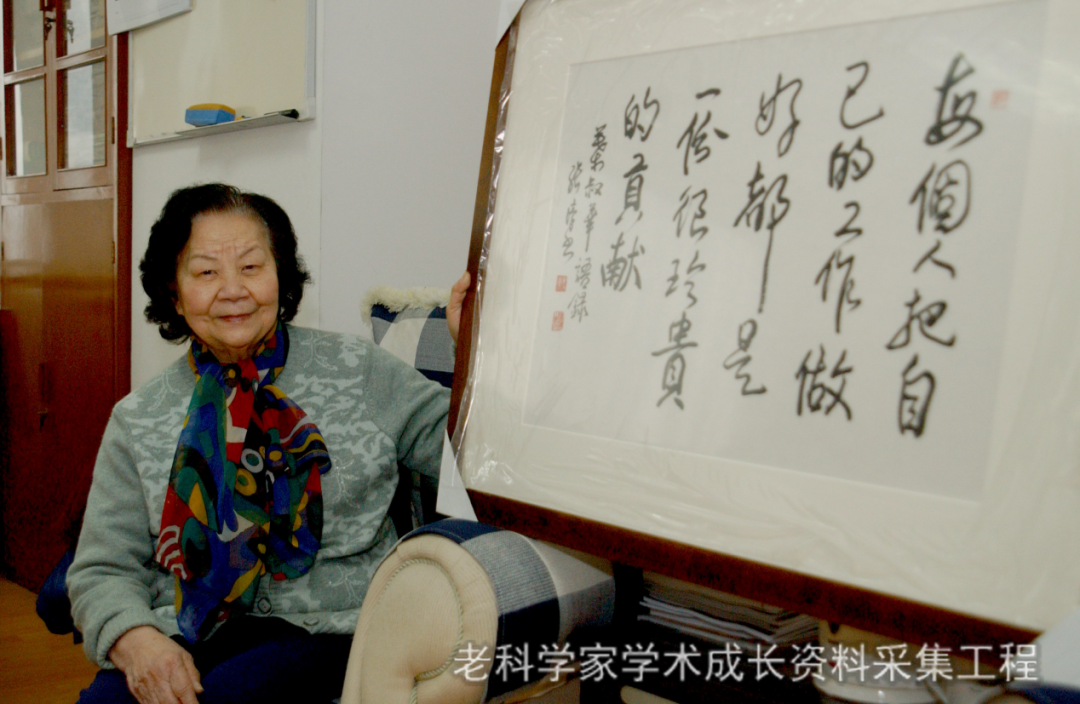 每個人把自
己的工作做
好都是
一份很珍貴
的貢献
葉叔華語録
老科学家学术成长资料采集工程